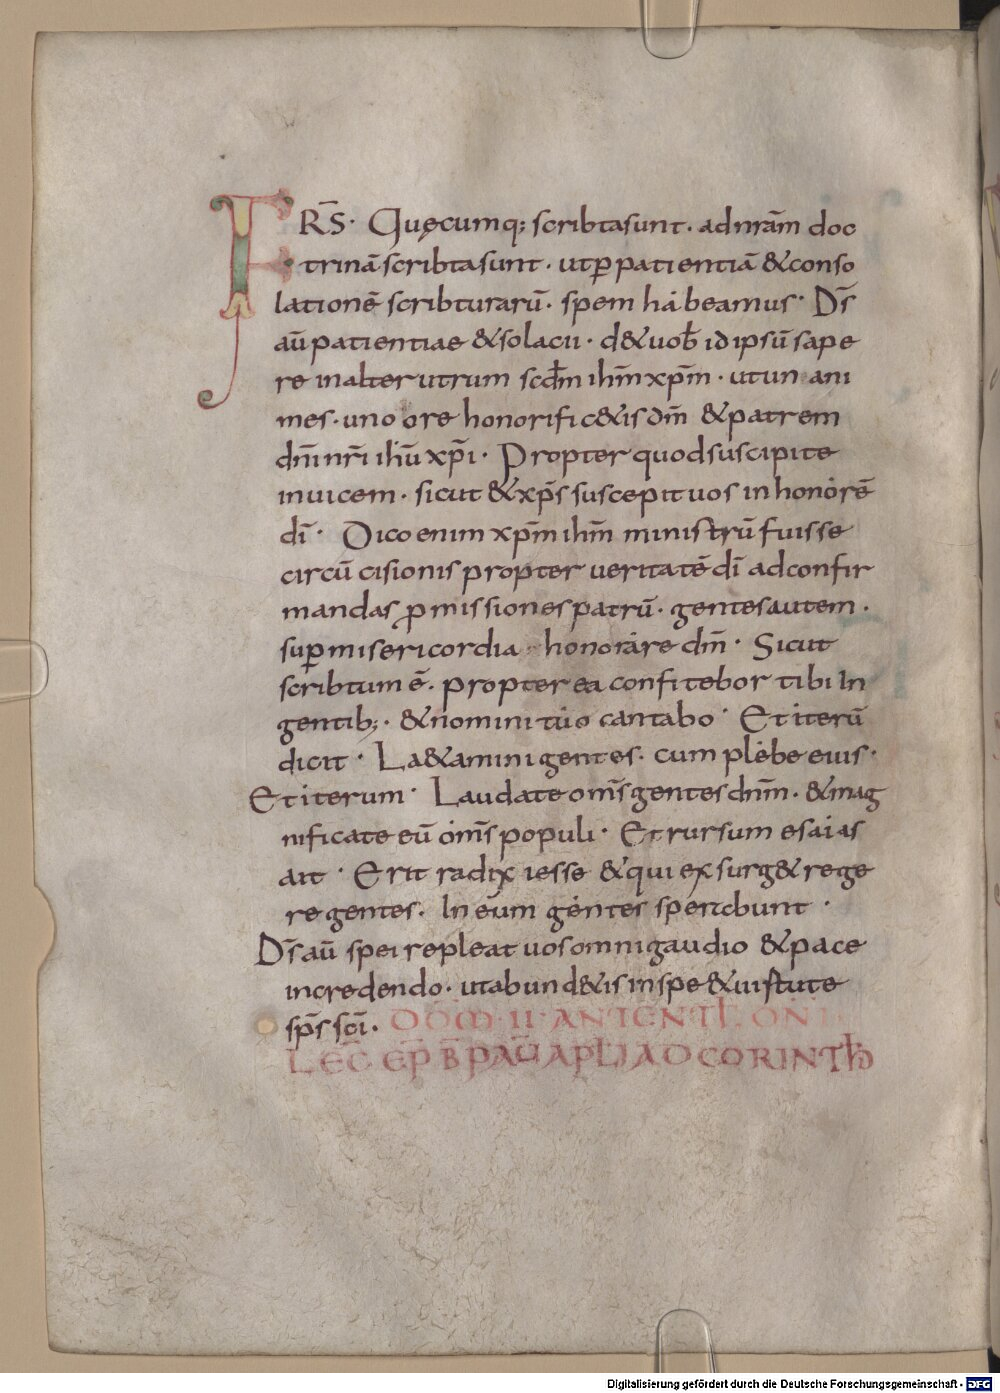 FRS̄· Quęcumq; scribta sunt· ad nr̄am doc
trinā scribta sunt· ut ꝑ patientiā & conso
lationē scribturarū· spem habeamus· Ds̄
aū patientiae & solacii· d& uob̄ id ipsū sape
re in alterutrum scd̄m ihm̄ xpm̄· ut un ani
mes· uno ore honorific&is dm̄ & patrem
dnī nrī ihū xpī· Propter quod suscipite
inuicem· sicut & xps̄ suscepit uos in honorē
dī· Dico enim xpm̄ ihm̄ ministrū fuisse
circū cisionis propter ueritatē dī ad confir
mandas ꝓmissiones patrū· gentes autem·
suꝑ misericordia honorare dm̄· Sicut
scribtum ē· propterea confitebor tibi In
gentib;· & nomini tuo cantabo· Et iterū
dicit· La&amini gentes· cum plebe eius·
Et iterum· Laudate om̄s gentes dnm̄· & mag
nificate eū om̄s populi· Et rursum esaias
ait· Erit radix iesse & qui exsurg& rege
re gentes· In eum gentes sperabunt·
Ds̄ aū spei repleat uos omni gaudio & pace
in credendo· ut abund&is in spe & uirtute
sps̄ scī· DOM̄· II· ANTE NT̄L DN̄I
LEC̄ EP̄ B̄ PAŪ APLĪ AD CORINTH̄
Digitalisierung gefördert durch die Deutsche Forschungsgemeinschaft - DFG